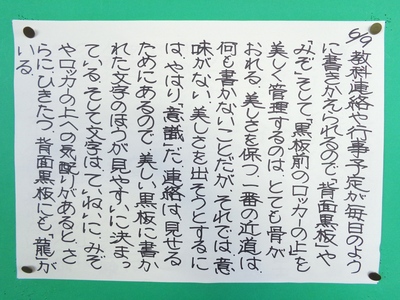 5/9 教科連絡や行事予定が毎日のよう
に書きかえられるので、「背面黒板」や
「みぞ」そして「黒板前のロッカーの上」を
美しく管理するのは、とても骨が
おれる。美しさを保つ一番の近道は、
何も書かないことだが、それでは、意
味がない。美しさを出そうとするに
は、やはり「意識」だ。連絡は、見せる
ためにあるので、美しい黒板に書か
れた文字のほうが見やすいに決まっ
ている。そして文字は、ていねいに、みぞ
やロッカーの上への気配りがあると、さ
らにひきたつ。背面黒板にも、「龍」が
いる。